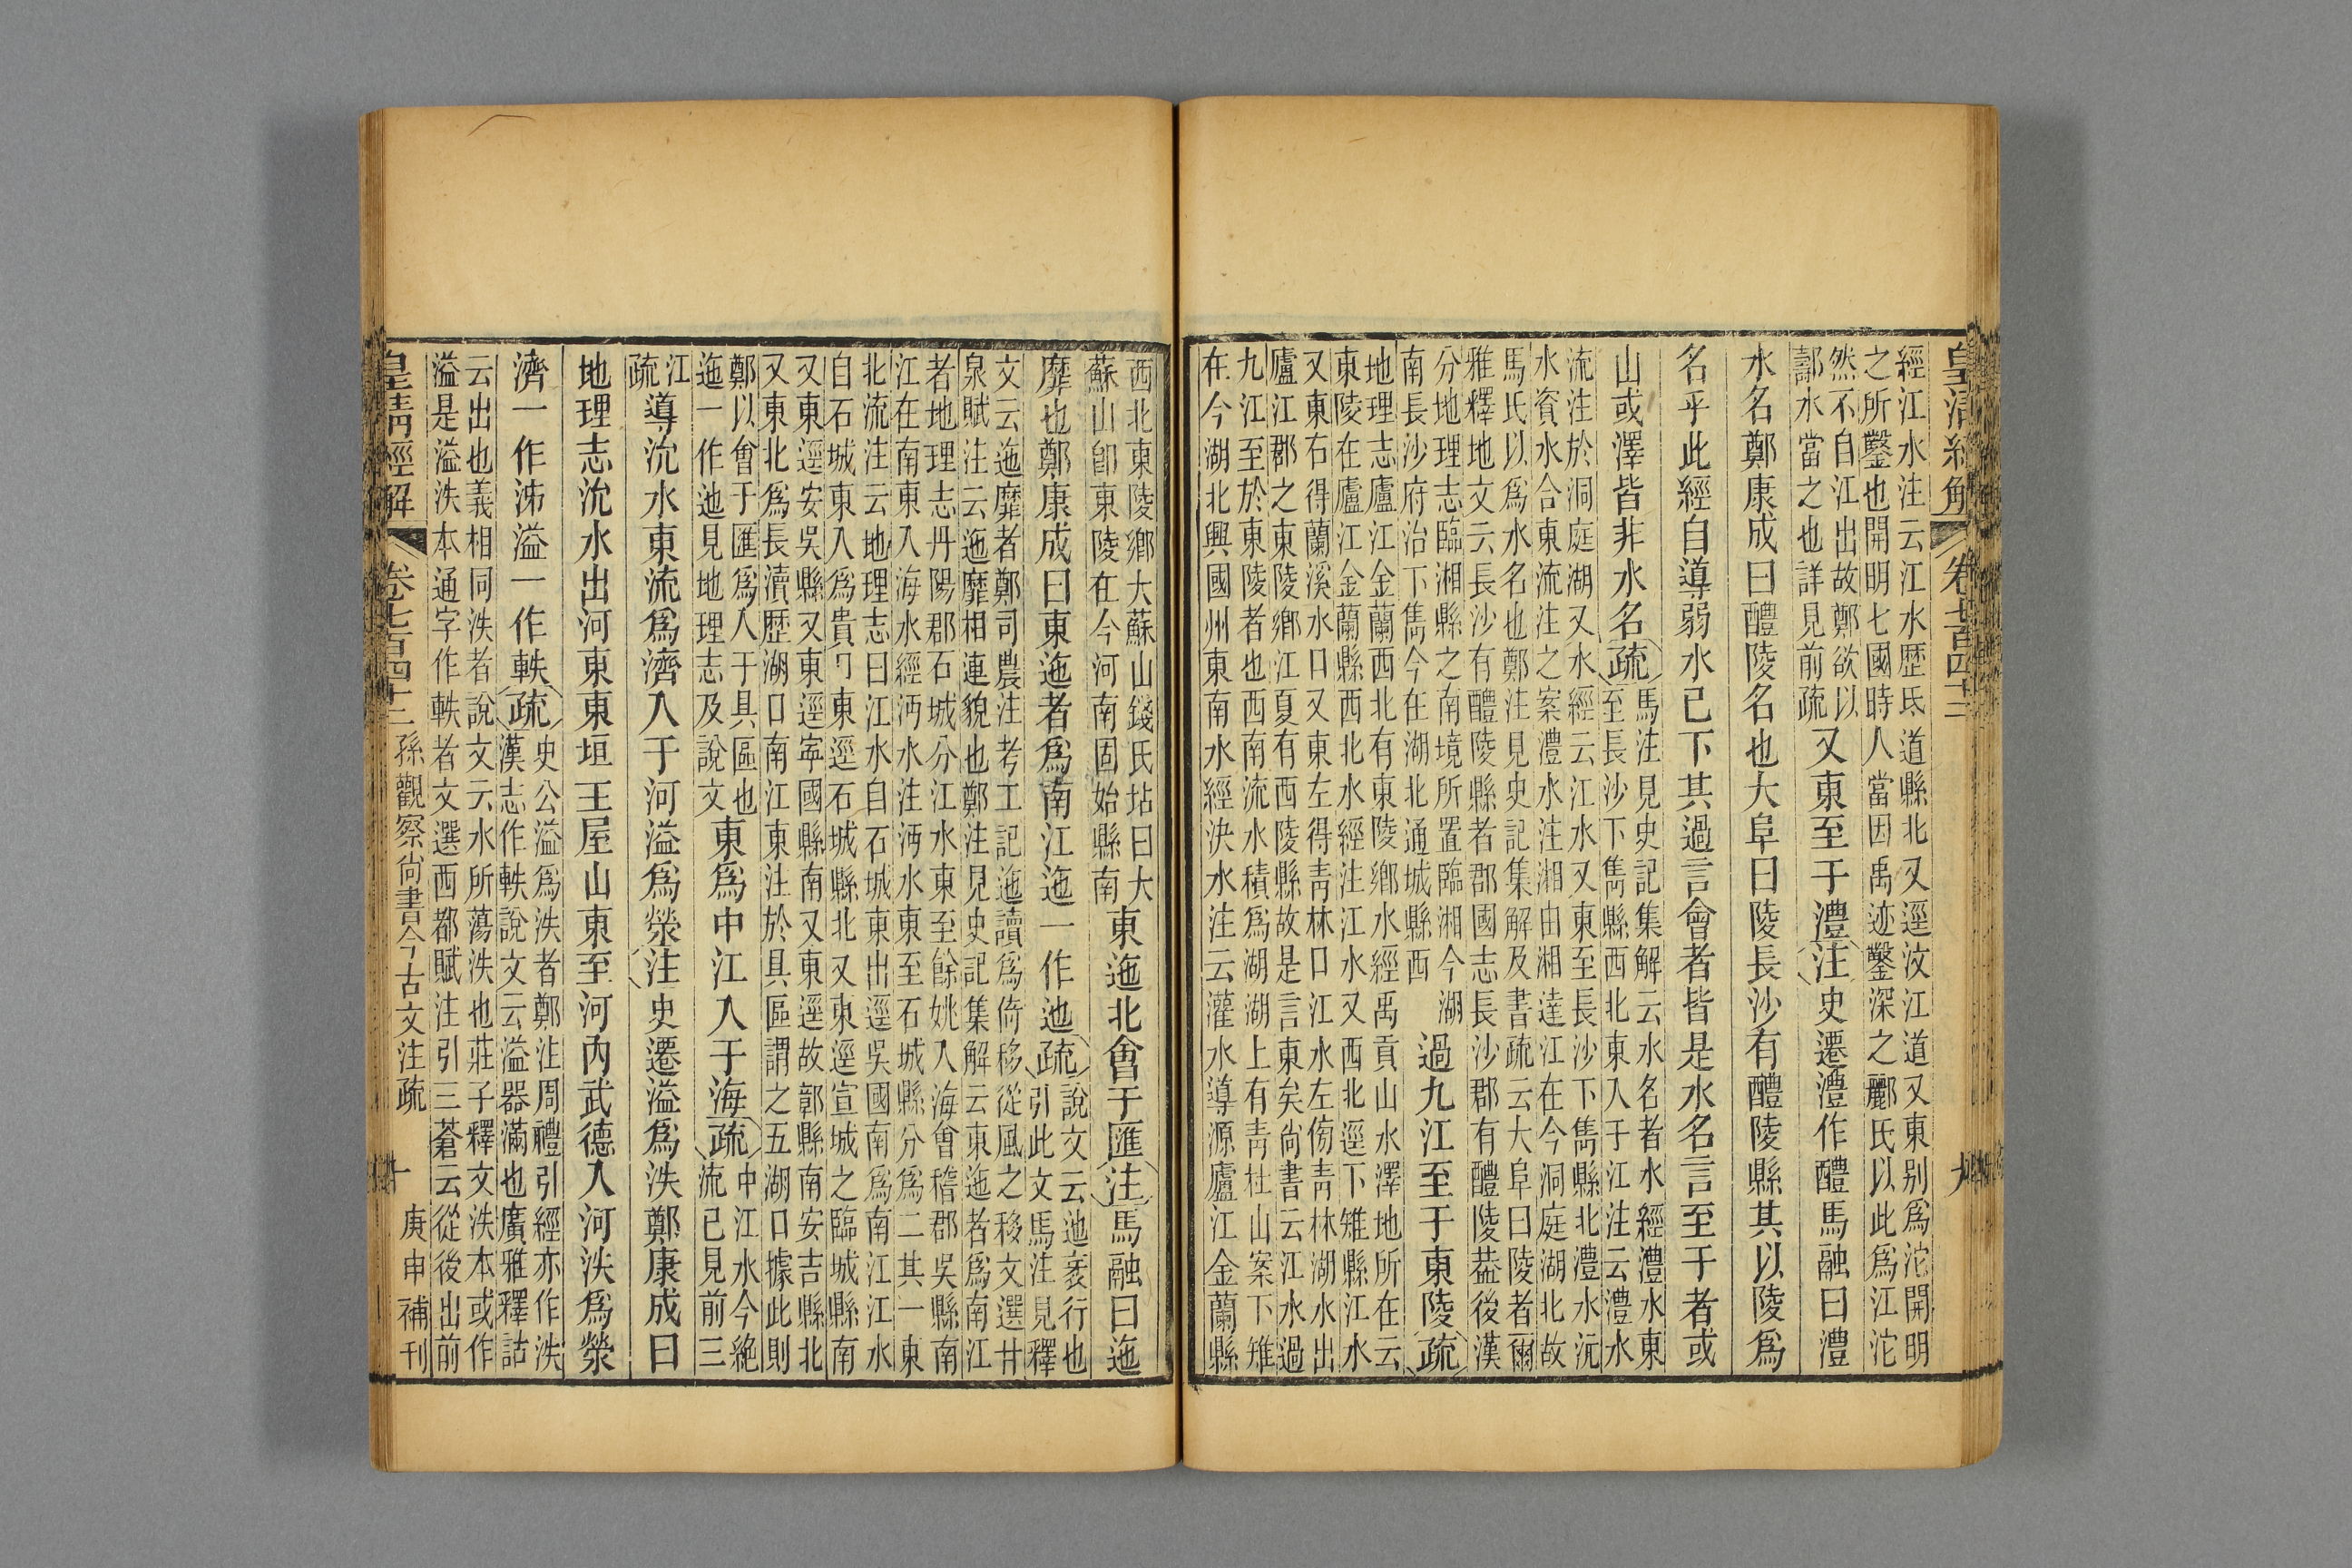 皇清經解 卷七百四十三 九
經江水注云江水歷氐道縣北又逕汶江道又東别爲沱開明
之所鑿也開明七國時人當因禹迹鑿深之酈氏以此爲江沱
然不自江出故鄭欲以
鄩水當之也詳見前疏
又東至于澧注史遷澧作醴馬融曰澧
水名鄭康成曰醴陵名也大阜曰陵長沙有醴陵縣其以陵爲
名乎此經自導弱水已下其過言會者皆是水名言至于者或
山或澤皆非水名疏
馬注見史記集解云水名者水經澧水東
至長沙下雋縣西北東入于江注云澧水
流注於洞庭湖又水經云江水又東至長沙下雋縣北澧水沅
水資水合東流注之案澧水注湘由湘達江在今洞庭湖北故
馬氏以爲水名也鄭注見史記集解及書疏云大阜曰陵者爾
雅釋地文云長沙有醴陵縣者郡國志長沙郡有醴陵葢後漢
分地理志臨湘縣之南境所置臨湘今湖
南長沙府治下雋今在湖北通城縣西
過九江至于東陵疏
地理志廬江金蘭西北有東陵鄉水經禹貢山水澤地所在云
東陵在廬江金蘭縣西北水經注江水又西北逕下雉縣江水
又東右得蘭溪水口又東左得靑林口江水左傍靑林湖水出
廬江郡之東陵鄉江夏有西陵縣故是言東矣尚書云江水過
九江至於東陵者也西南流水積爲湖湖上有靑林山案下雉
在今湖北興國州東南水經決水注云灌水導源廬江金蘭縣
西北東陵鄉大蘇山錢氏坫曰大
蘇山卽東陵在今河南固始縣南
東迤北會于匯注馬融曰迤
靡也鄭康成曰東迤者爲南江迤一作迆疏
說文云迆衺行也
引此文馬注見釋
文云迤靡者鄭司農注考工記迤讀爲倚移從風之移文選甘
泉賦注云迤靡相連貌也鄭注見史記集解云東迤者爲南江
者地理志丹陽郡石城分江水東至餘姚入海會稽郡吳縣南
江在南東入海水經沔水注沔水東至石城縣分爲二其一東
北流注云地理志曰江水自石城東出逕吳國南爲南江江水
自石城東入爲貴口東逕石城縣北又東逕宣城之臨城縣南
又東逕安吳縣又東逕寧國縣南又東逕故鄣縣南安吉縣北
又東北爲長瀆歷湖口南江東注於具區謂之五湖口據此則
鄭以會于匯爲入于具區也
迤一作迆見地理志及說文
東爲中江入于海疏
中江水今絶
流已見前三
江
疏
導沇水東流爲濟入于河溢爲滎注史遷溢爲泆鄭康成曰
地理志沇水出河東東垣王屋山東至河內武德入河泆爲滎
濟一作泲溢一作軼疏
史公溢爲泆者鄭注周禮引經亦作泆
漢志作軼說文云溢器滿也廣雅釋詁
云出也義相同泆者說文云水所蕩泆也莊子釋文泆本或作
溢是溢泆本通字作軼者文選西都賦注引三蒼云從後出前
皇清經解 卷七百四十三 孫觀察尚書今古文注疏 十 庚申補刊